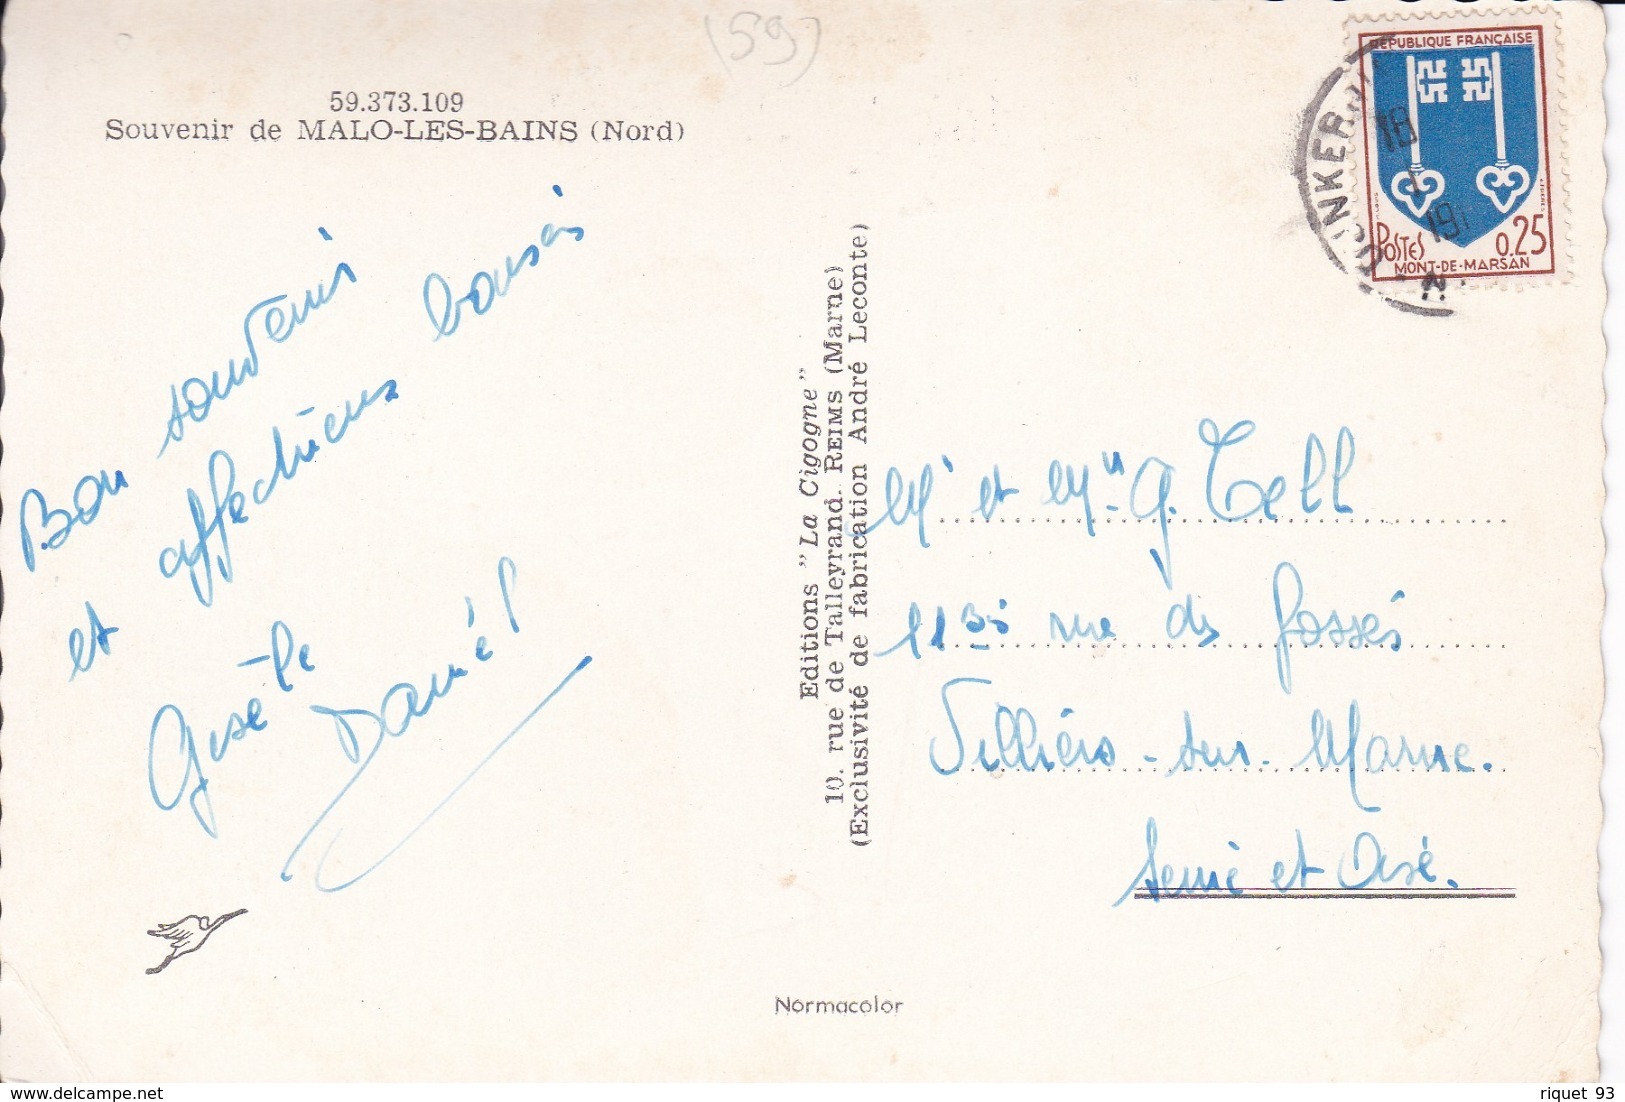 (59)
59.373.109
Souvenir de MALO-LES-BAINS (Nord)
Bon souvenir
et affectueux baisers
Gisèle
Daniel
Editions "La Cigogne"
10, rue de Talleyrand. REIMS (Marne)
(Exclusivité de fabrication André Leconte)
RÉPUBLIQUE FRANÇAISE
POSTES 0,25
MONT-DE-MARSAN
DUNKERQUE
18
19
Mr et Mme G. Tell
11 bis rue des fossés
Villiers-sur-Marne.
Seine et Oise.
Normacolor
www.delcampe.net
riquet 93